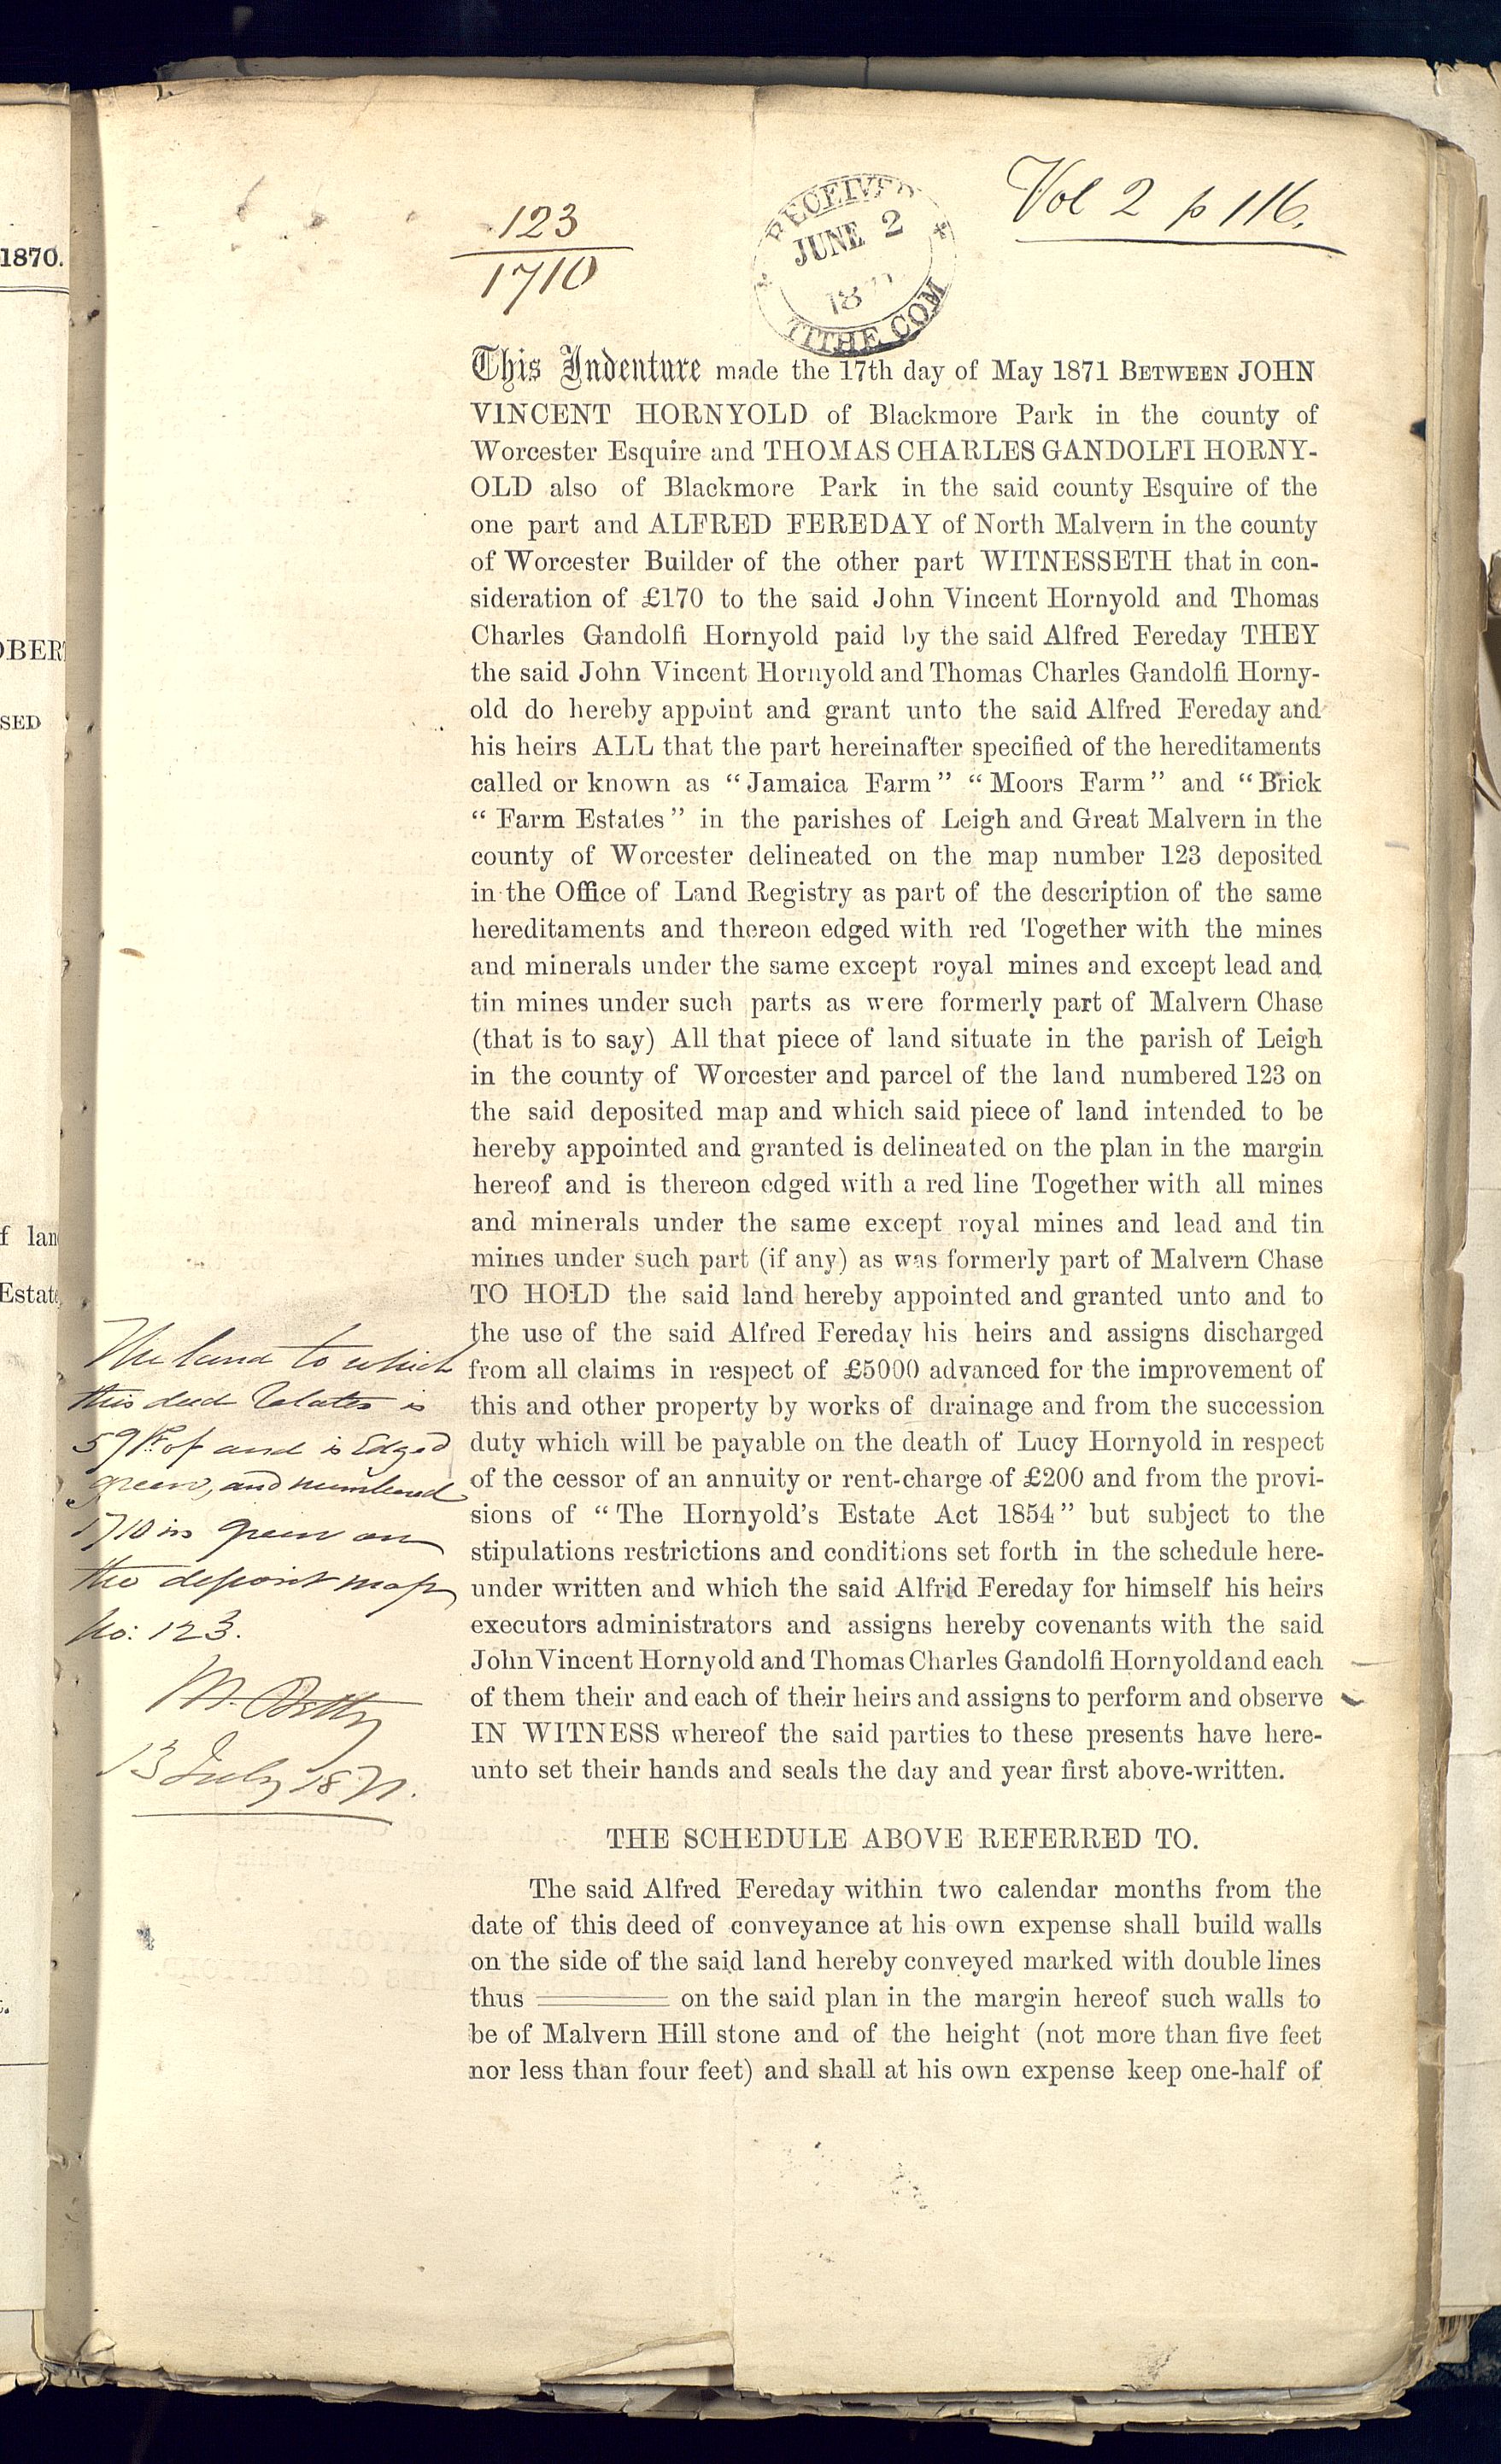 1870.
OBERT
SED
f lan
Estate
123
1710
RECEIVED
JUNE 2
18
TITHE COM
Vol 2 p 116.
This Indenture made the 17th day of May 1871 BETWEEN JOHN
VINCENT HORNYOLD of Blackmore Park in the county of
Worcester Esquire and THOMAS CHARLES GANDOLFI HORNY-
OLD also of Blackmore Park in the said county Esquire of the
one part and ALFRED FEREDAY of North Malvern in the county
of Worcester Builder of the other part WITNESSETH that in con-
sideration of £170 to the said John Vincent Hornyold and Thomas
Charles Gandolfi Hornyold paid by the said Alfred Fereday THEY
the said John Vincent Hornyold and Thomas Charles Gandolfi Horny-
old do hereby appoint and grant unto the said Alfred Fereday and
his heirs ALL that the part hereinafter specified of the hereditaments
called or known as "Jamaica Farm" "Moors Farm" and "Brick
"Farm Estates" in the parishes of Leigh and Great Malvern in the
county of Worcester delineated on the map number 123 deposited
in the Office of Land Registry as part of the description of the same
hereditaments and thereon edged with red Together with the mines
and minerals under the same except royal mines and except lead and
tin mines under such parts as were formerly part of Malvern Chase
(that is to say) All that piece of land situate in the parish of Leigh
in the county of Worcester and parcel of the land numbered 123 on
the said deposited map and which said piece of land intended to be
hereby appointed and granted is delineated on the plan in the margin
hereof and is thereon edged with a red line Together with all mines
and minerals under the same except royal mines and lead and tin
mines under such part (if any) as was formerly part of Malvern Chase
TO HOLD the said land hereby appointed and granted unto and to
the use of the said Alfred Fereday his heirs and assigns discharged
from all claims in respect of £5000 advanced for the improvement of
this and other property by works of drainage and from the succession
duty which will be payable on the death of Lucy Hornyold in respect
of the cessor of an annuity or rent-charge of £200 and from the provi-
sions of "The Hornyold's Estate Act 1854" but subject to the
stipulations restrictions and conditions set forth in the schedule here-
under written and which the said Alfrid Fereday for himself his heirs
executors administrators and assigns hereby covenants with the said
John Vincent Hornyold and Thomas Charles Gandolfi Hornyold and each
of them their and each of their heirs and assigns to perform and observe
IN WITNESS whereof the said parties to these presents have here-
unto set their hands and seals the day and year first above-written.
The land to which
this deed relates is
59 of and is Edged
green, and numbered
1710 in green on
the deposit map
No: 123.
M.
13 July 1871.
THE SCHEDULE ABOVE REFERRED TO.
The said Alfred Fereday within two calendar months from the
date of this deed of conveyance at his own expense shall build walls
on the side of the said land hereby conveyed marked with double lines
thus on the said plan in the margin hereof such walls to
be of Malvern Hill stone and of the height (not more than five feet
nor less than four feet) and shall at his own expense keep one-half of